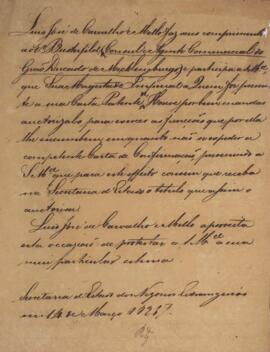 Luis José de Carvalho e Mello faz seus cumprimentos
a Sr. Consul e Agente Commercial do
Gram Ducado de Mecklemburgo, e participa a S. Mce.
que Sua Magestade Imperial a Quem foi presen-
te a sua Carta Patente, Houve por bem mandar
autorizalo para exercer as funcções que por ella
lhe incumbem, enquanto não se expede a
competente Carta de Confirmação, prevenindo a
S. Mce. que para este effeito convem que receba
na Secretaria de Estado o titulo que assim o
autorisa.
Luis José de Carvalho e Mello aproveita
esta occasião de protestar a S. Mce. a sua
mui particular estima.
Secretaria d'Estado dos Negocios Estrangeiros
em 14 de Março